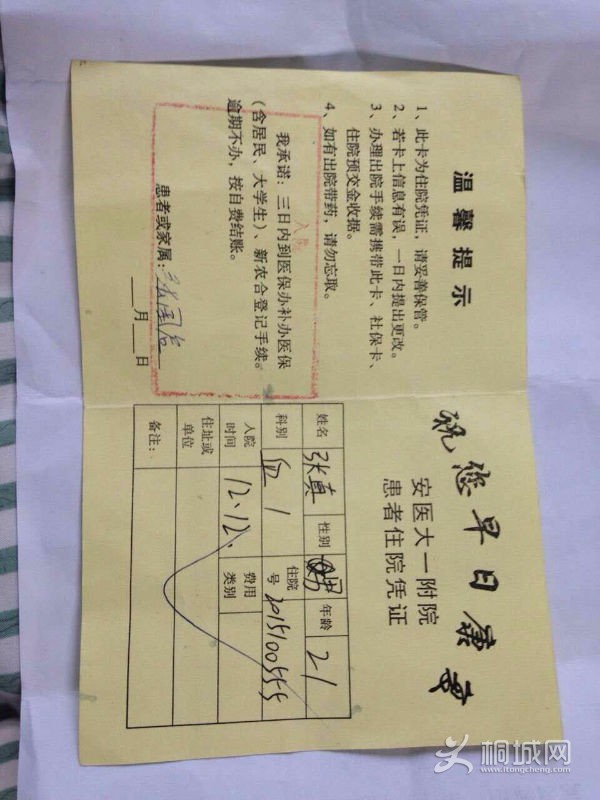 温馨提示
1、此卡为住院凭证，请妥善保管。
2、若卡上信息有误，一日内提出更改。
3、办理出院手续需携带此卡、社保卡、
住院预交金收据。
4、如有出院带药，请勿忘取。
我承诺：三日内到医保办补办医保
（含居民、大学生）、新农合登记手续。
逾期不办，按自费结账。
患者或家属：
___月___日
祝您早日康复
安医大一附院
患者住院凭证
姓名 张真 性别 男 年龄 21
科别 血1 住院号 2015100555
入院时间 12.12. 费用类别
住址或单位
备注：
桐城网
www.itongcheng.com